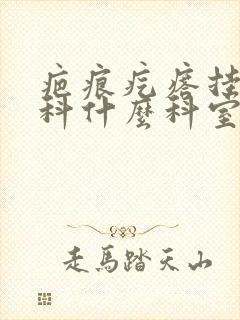 疤痕疙瘩挂
科什麼科室
走馬踏天山